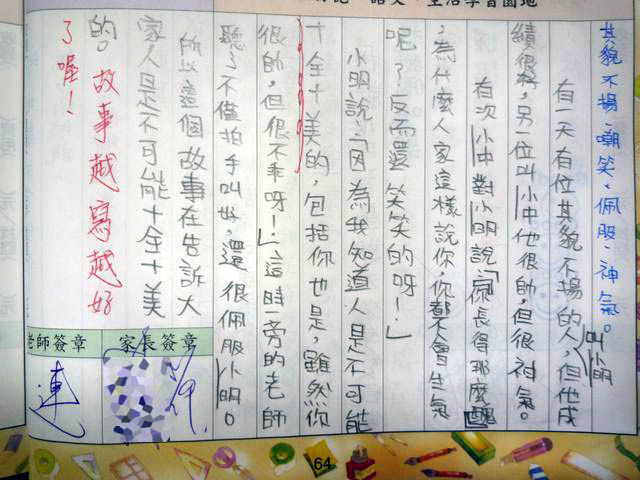 生活學習園地
其貌不揚、嘲笑、佩服、神氣。
有一天有位其貌不揚的人叫小明,但他成
績很棒,另一位叫小中他很帥,但很神氣。
有次小中對小明說:「你長得那麼醜
,為什麼人家這樣說你,你都不會生氣
呢?反而還笑笑的呀!」
小明說:「因為我知道人是不可能
十全十美的,包括你也是,雖然你
很帥,但很不乖呀!」這時一旁的老師
聽了不僅拍手叫好,還很佩服小明。
所以這個故事在告訴大
家,人是不可能十全十美
的。故事越寫越好
了喔!
家長簽章
老師簽章
連
64